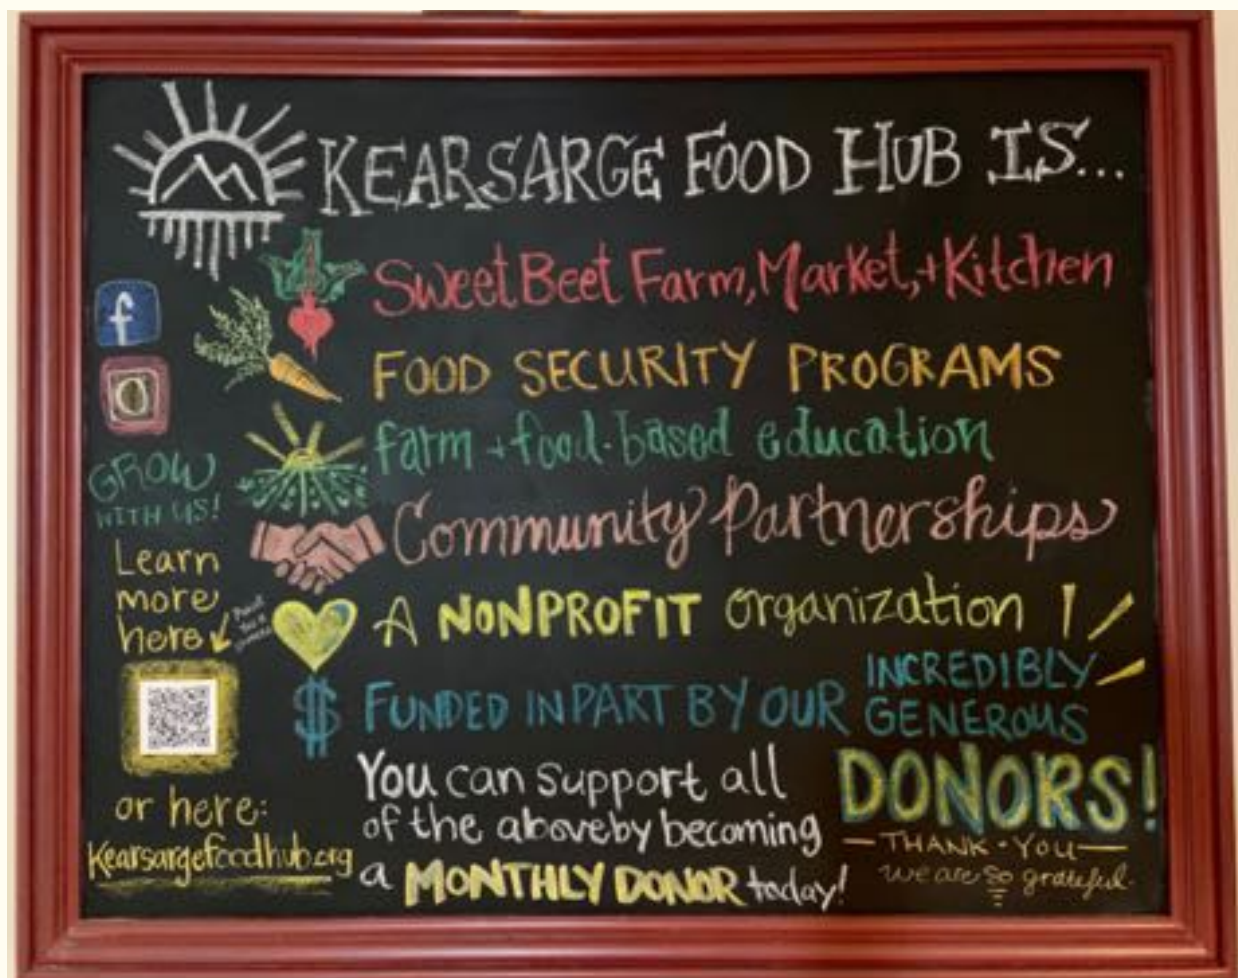 KEARSARGE FOOD HUB IS...
Sweet Beet Farm, Market, + Kitchen
FOOD SECURITY PROGRAMS
farm + food-based education
Community Partnerships
A NONPROFIT organization
FUNDED IN PART BY OUR INCREDIBLY
GENEROUS
DONORS!
— THANK - YOU —
we are so grateful.
You can support all
of the above by becoming
a MONTHLY DONOR today!
f
GROW
WITH US!
Learn
more
here
or here:
Kearsargefoodhub.org